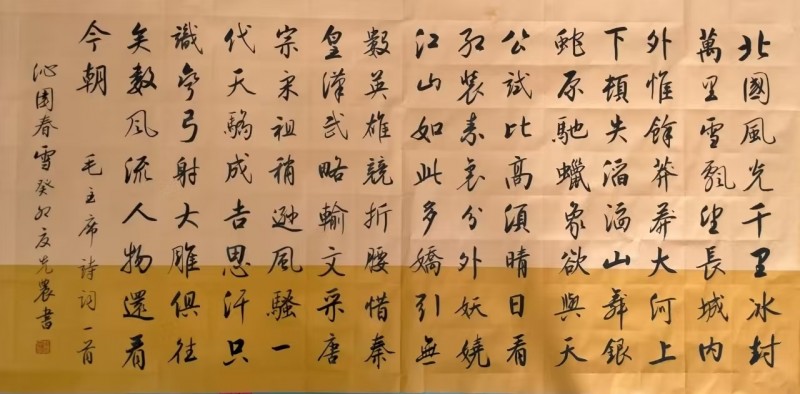 北國風光千里冰封
萬里雪飄望長城内
外惟餘莽莽大河上
下頓失滔滔山舞銀
蛇原馳蠟象欲與天
公試比高須晴日看
紅裝素裹分外妖嬈
江山如此多嬌引無
數英雄競折腰惜秦
皇漢武略輸文采唐
宗宋祖稍遜風騷一
代天驕成吉思汗只
識彎弓射大雕俱往
矣數風流人物還看
今朝 毛主席詩詞一首
沁園春雪癸卯農書